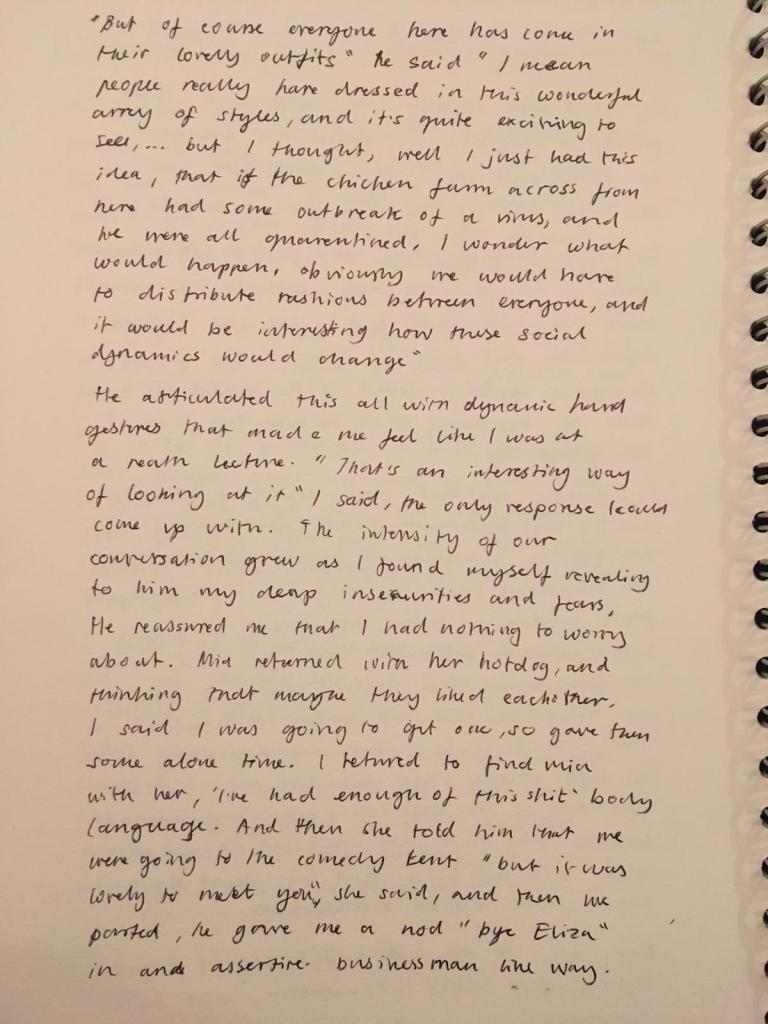 "But of course everyone here has come in
their lovely outfits" he said "I mean
people really have dressed in this wonderful
array of styles, and it's quite exciting to
see,... but I thought, well I just had this
idea, that if the chicken farm across from
here had some outbreak of a virus, and
we were all quarentined, I wonder what
would happen, obviously we would have
to distribute rashions between everyone, and
it would be interesting how these social
dynamics would change"
He articulated this all with dynamic hand
gestures that made me feel like I was at
a math lecture. "That's an interesting way
of looking at it" I said, the only response I could
come up with. The intensity of our
conversation grew as I found myself revealing
to him my deep insecurities and fears,
He reassured me that I had nothing to worry
about. Mia returned with her hotdog, and
thinking that maybe they liked eachother,
I said I was going to get one, so gave them
some alone time. I returned to find mia
with her, 'I've had enough of this shit' body
language. And then she told him that we
were going to the comedy tent "but it was
lovely to meet you", she said, and then we
parted, he gave me a nod "bye Eliza"
in and assertive businessman like way.